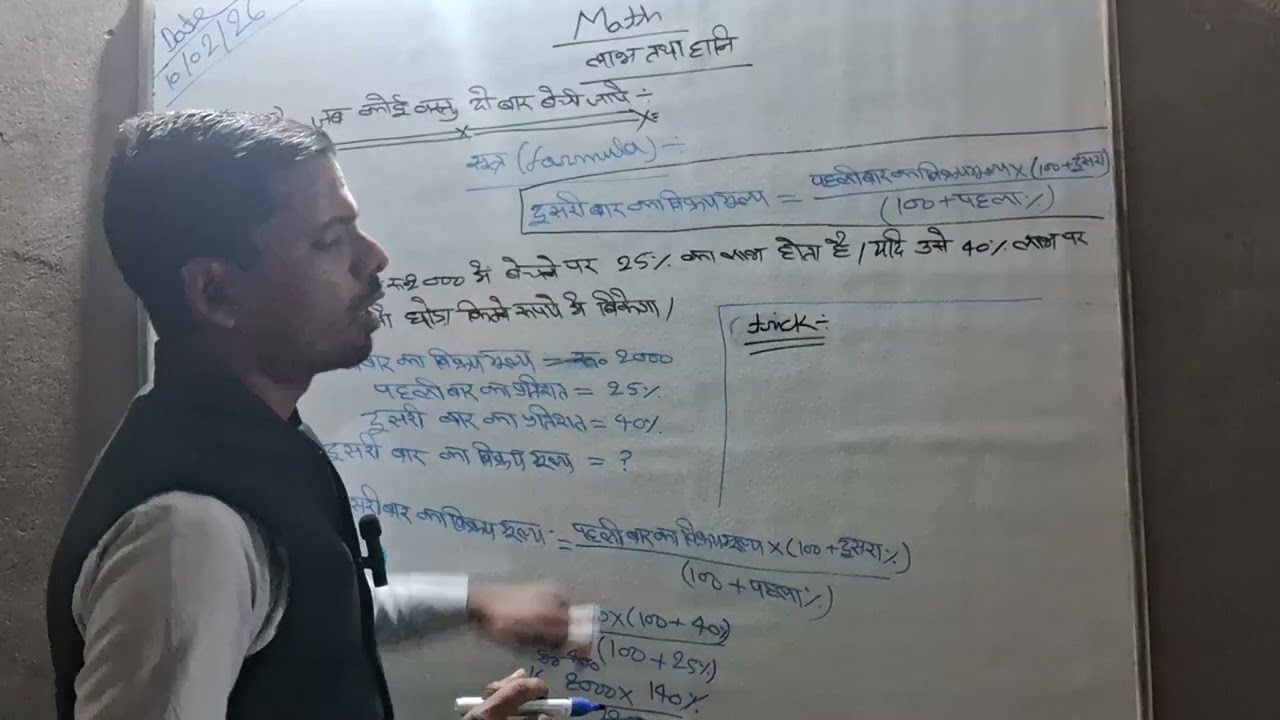 Date
10/02/26
Math
लाभ तथा हानि
जब कोई वस्तु दो बार बेची जाये ÷
सूत्र (farmula) ÷
दूसरी बार का विक्रय मूल्य = पहली बार का विक्रय मूल्य × (100 + दूसरा)
(100 + पहला %)
रु 2000 में बेचने पर 25% का लाभ होता है / यदि उसे 40% लाभ पर
घोड़ा कितने रूपये में बिकेगा /
trick ÷
बार का विक्रय मूल्य = 2000
पहली बार का प्रतिशत = 25%
दूसरी बार का प्रतिशत = 40%
दूसरी बार का विक्रय मूल्य = ?
सरी बार का विक्रय मूल्य = पहली बार का विक्रय मूल्य × (100 + दूसरा %)
(100 + पहला %)
0 × (100 + 40%)
(100 + 25%)
2000 × 140%